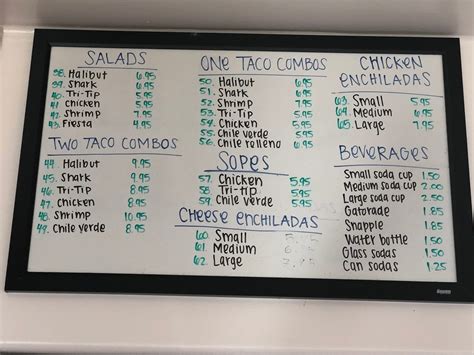 SALADS
38. Halibut 6.95
39. Shark 6.95
40. Tri-Tip 5.95
41. Chicken 5.95
42. Shrimp 7.95
43. Fiesta 4.95
TWO TACO COMBOS
44. Halibut 9.95
45. Shark 9.95
46. Tri-Tip 8.95
47. Chicken 8.95
48. Shrimp 10.95
49. Chile verde 8.95
ONE TACO COMBOS
50. Halibut 6.95
51. Shark 6.95
52. Shrimp 7.95
53. Tri-Tip 5.95
54. Chicken 5.95
55. Chile verde 5.95
56. Chile relleno 6.95
SOPES
57. Chicken 5.95
58. Tri-tip 5.95
59. Chile verde 5.95
CHEESE ENCHILADAS
60. Small
61. Medium
62. Large
CHICKEN ENCHILADAS
63. Small 5.95
64. Medium 6.95
65. Large 7.95
BEVERAGES
Small soda cup 1.50
Medium soda cup 2.00
Large soda cup 2.50
Gatorade 1.85
Snapple 1.85
Water bottle 1.50
Glass sodas 1.50
Can sodas 1.25